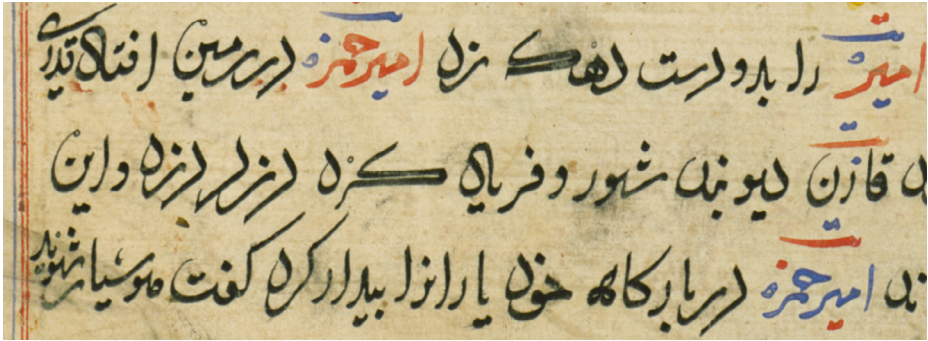 امیر را بدو دست دهک زد امیر حمزه در زمین افتاد
قارن دیو بند شور و فریاد کرد در لرزه و این
ند امیر حمزه در بارگاه خود یارانرا بیدار کرد گفت هوشیار شوید